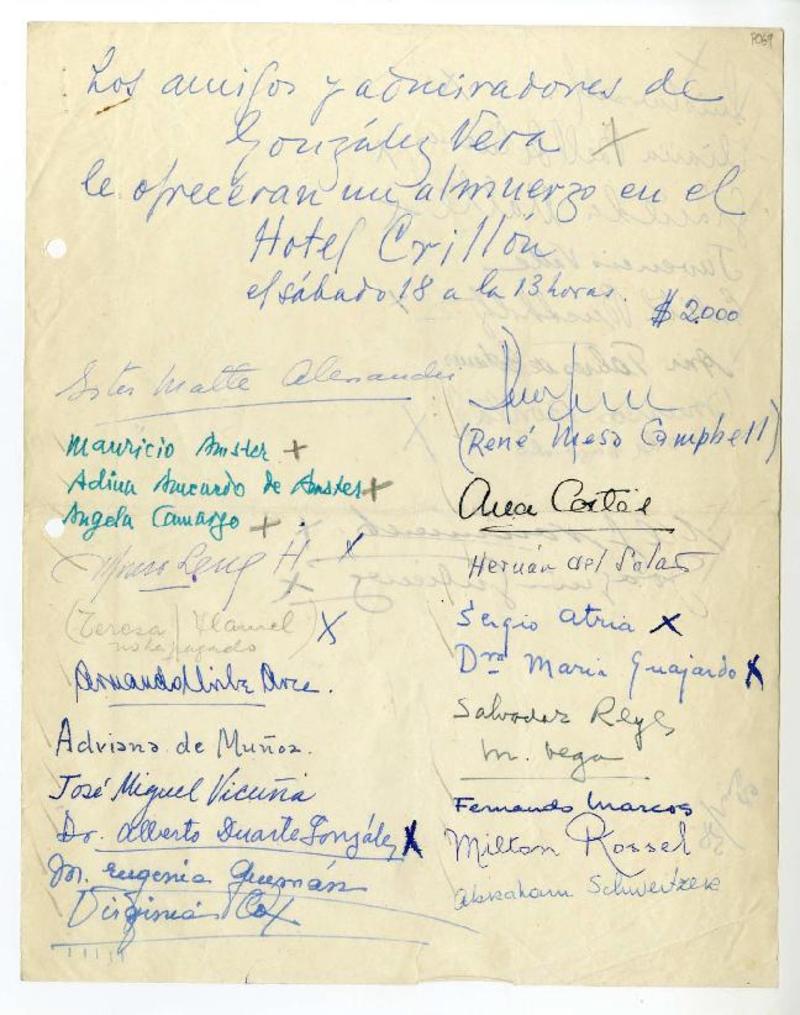 P069
Los amigos y admiradores de
González Vera
le ofrecerán un almuerzo en el
Hotel Crillón
el sábado 18 a la 13 horas.
$ 2.000
Ester Matte Alessandri
Mauricio Amster
Adina Amenardo de Amster
Angela Camargo
Leng H.
(Teresa Hamel)
no ha pagado
Armando Uribe Arce.
Adriana de Muñoz.
José Miguel Vicuña
Dr. Alberto Duarte González
M. Eugenia Guzmán
Virginia Cox
(René Meso Campbell)
Ana Cortés
Hernán del Solar
Sergio Atria
Dra Maria Guajardo
Salvador Reyes
M. Vega
Fernando Marcos
Milton Rossel
Abraham Schweitzer